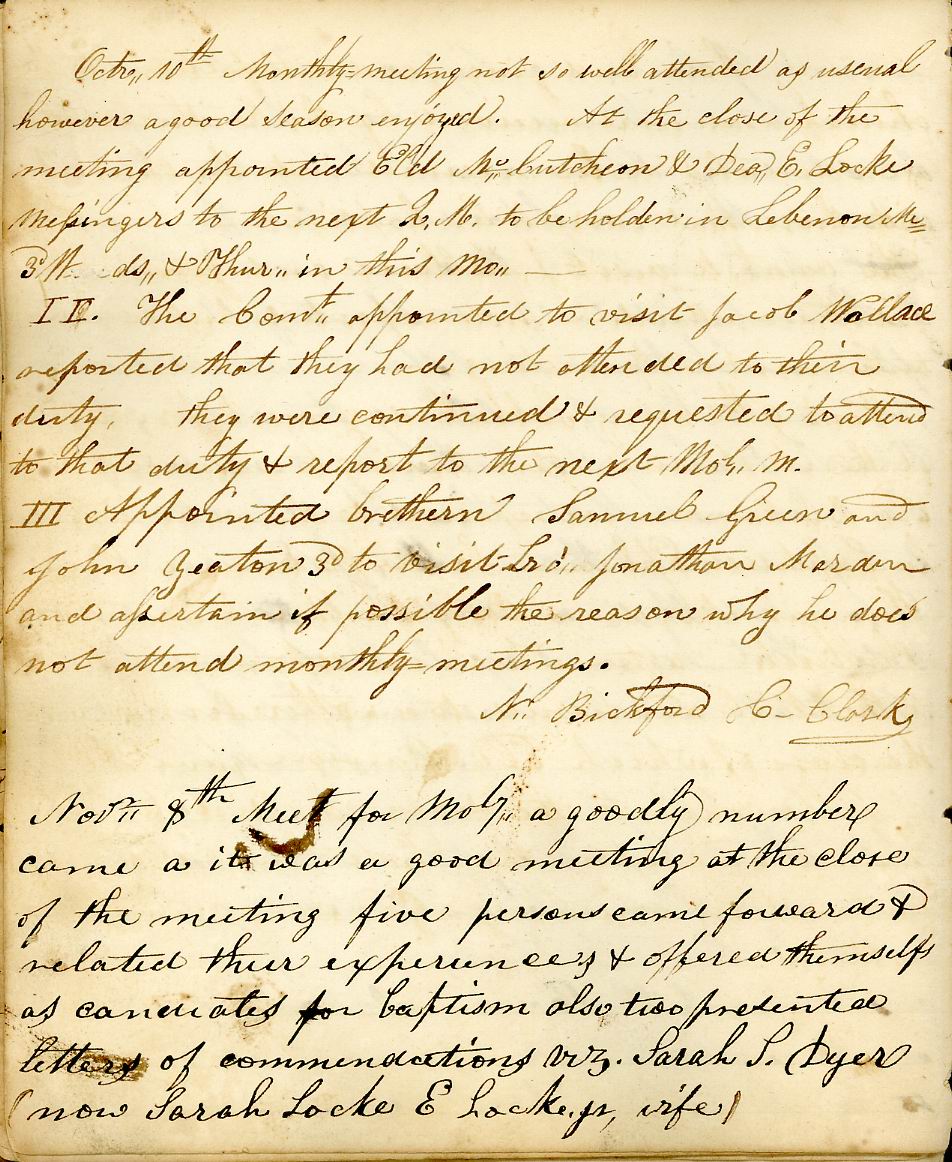 Octr,, 10th Monthly-meeting not so well attended as useual
however a good season enjoyed. At the close of the
meeting appointed Eld Mc,,Cutcheon & Dea,, E. Locke
Messingers to the next Q. M. to be holden in Lebenon Me
3d W ds,, & Thur,, in this Mo,, —
II. The Comt,, appointed to visit Jacob Wallace
reported that they had not attended to their
duty, they were continued & requested to attend
to that duty & report to the next Moly. M.
III Appointed brethern Samuel Green and
John Yeaton 3d to visit bro,, Jonathan Marden
and assertain if possible the reason why he does
not attend monthly-meetings.
N,, Bickford C- Clark
Novr,, 8th Meet for Moly,, a goodly number
came a it was a good meeting at the close
of the meeting five persons came forward &
related their experiences & offered themselfs
as canciates for baptism also two presented
letters of commendcations viz. Sarah S. Dyer
(now Sarah Locke E Locke, jr, wife)